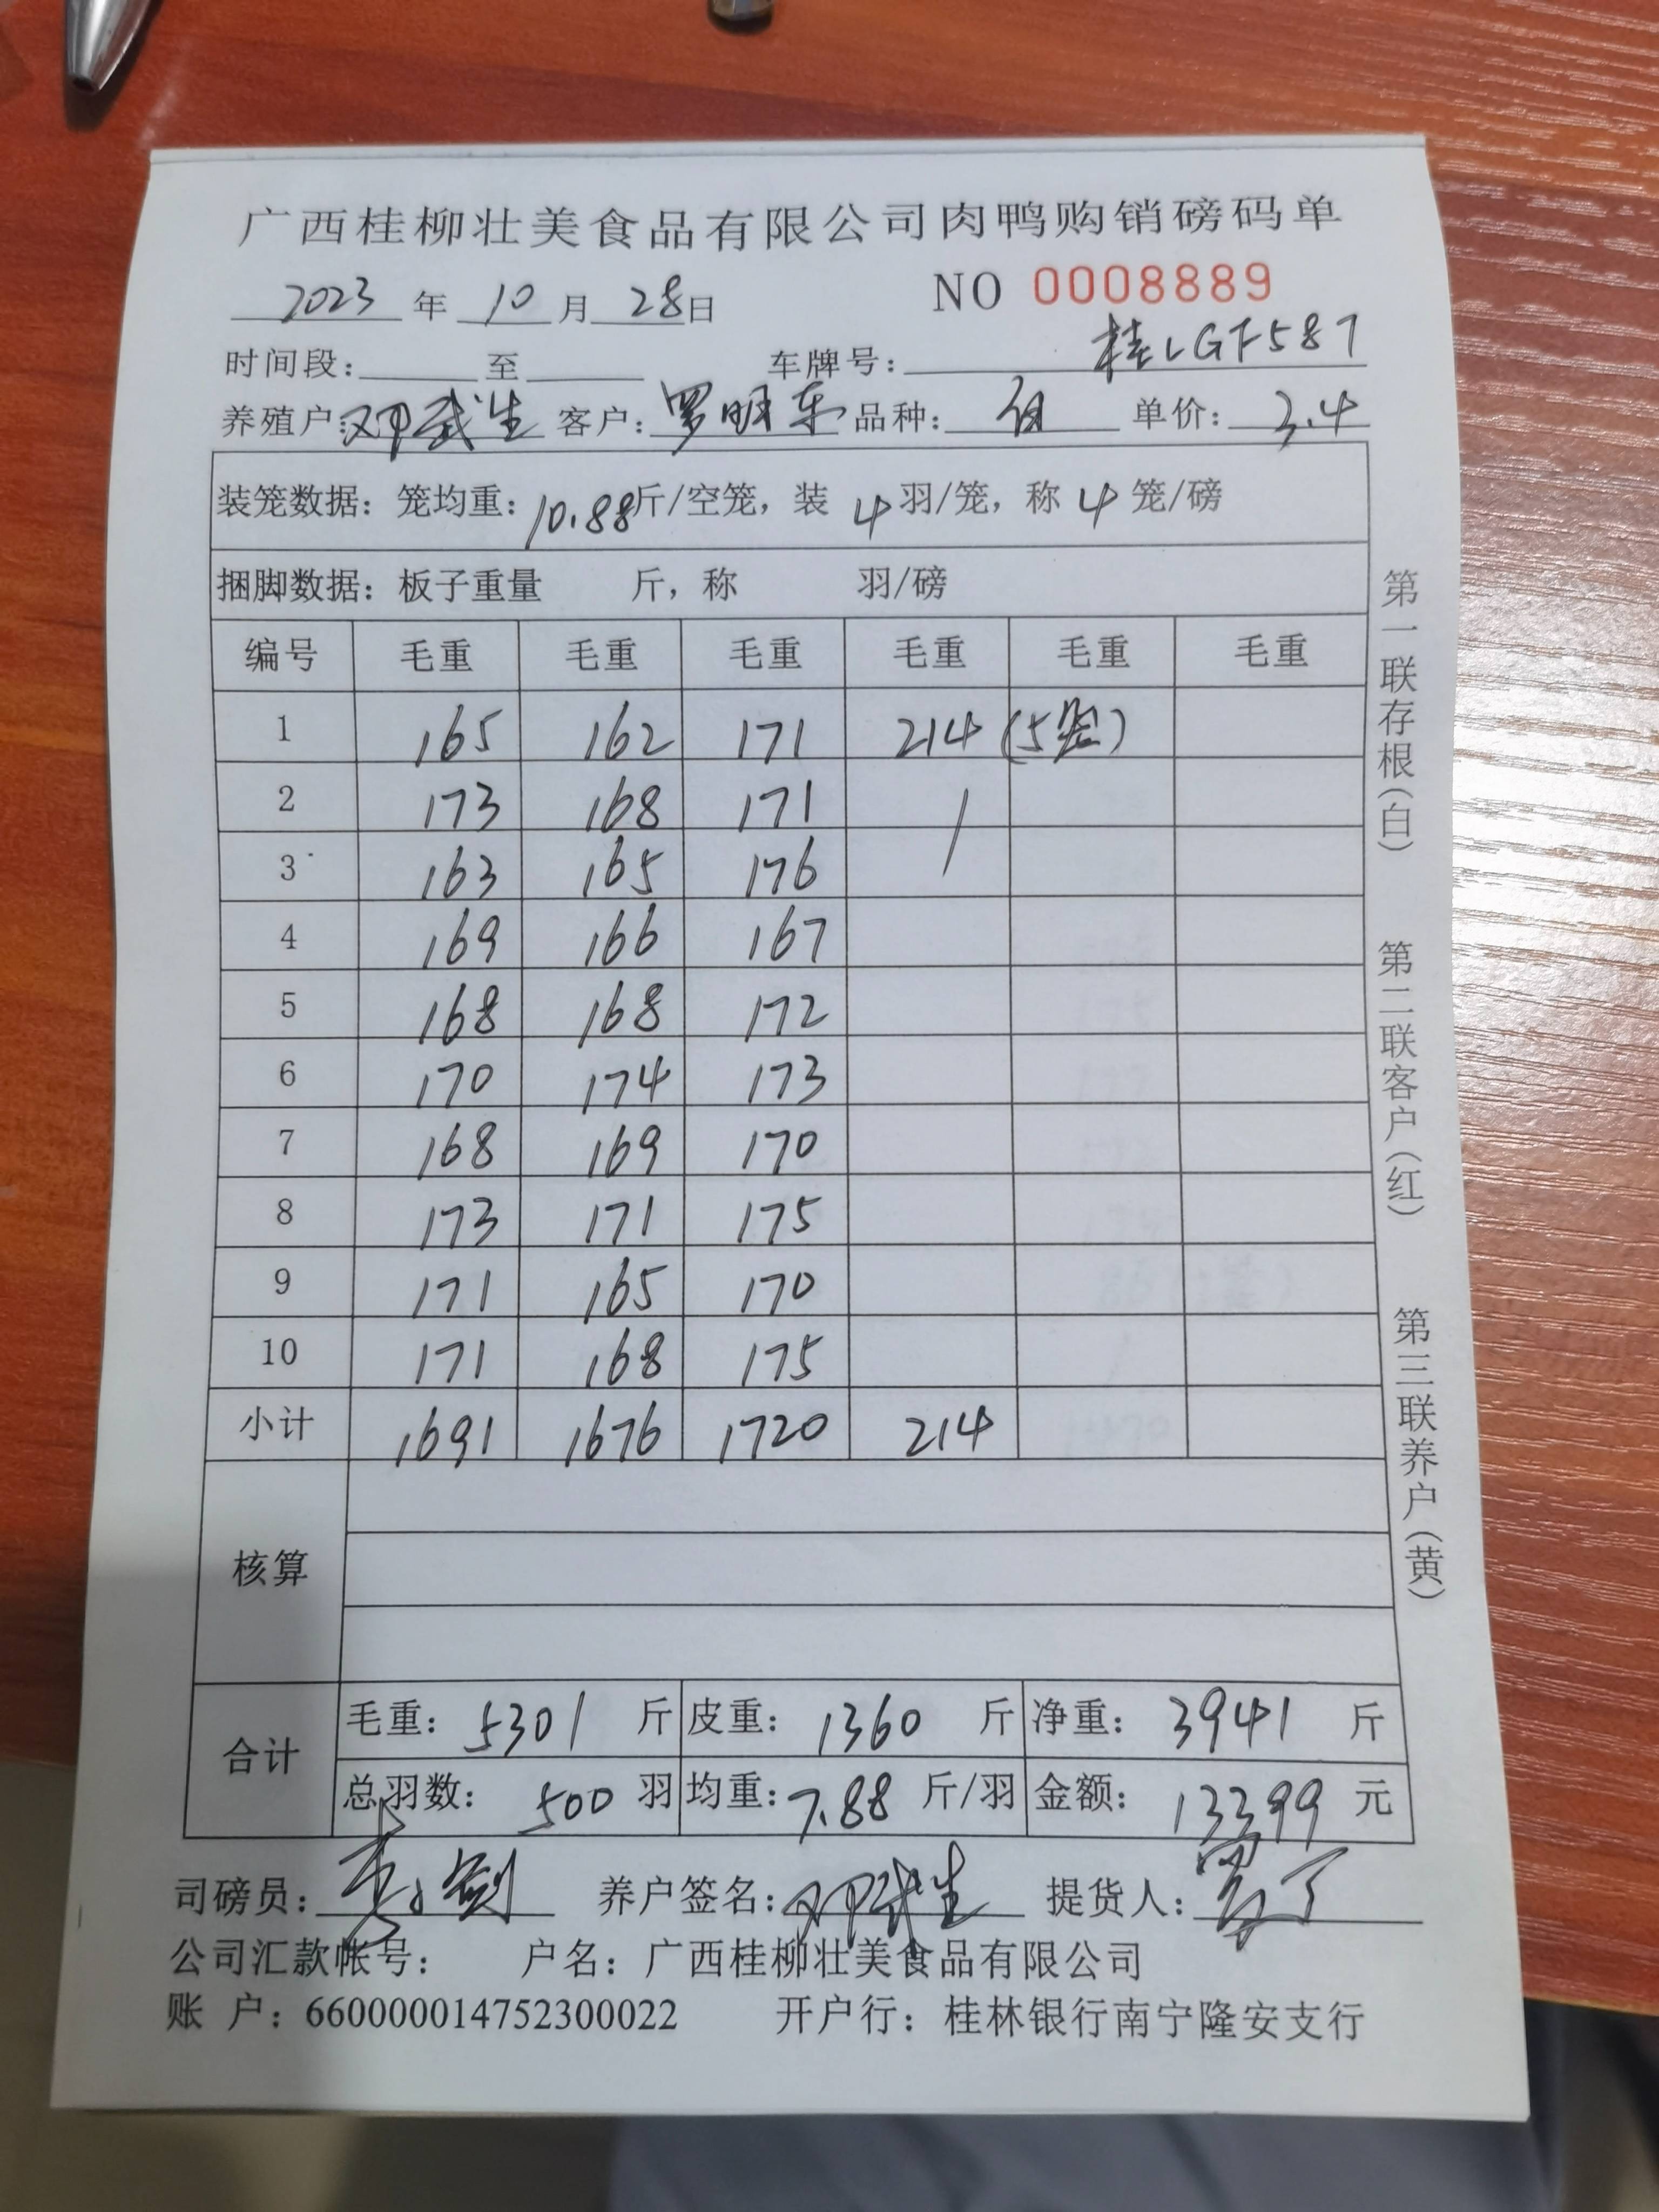 广西桂柳壮美食品有限公司肉鸭购销磅码单
2023 年 10 月 28日 NO 0008889
时间段: 至 车牌号: 桂LGF587
养殖户:邓武生 客户:罗明东 品种: 单价: 3.4
装笼数据：笼均重：10.88斤/空笼，装 4 羽/笼，称 4 笼/磅
捆脚数据：板子重量 斤，称 羽/磅
编号 毛重 毛重 毛重 毛重 毛重 毛重
1 165 162 171 214 (5笼)
2 173 168 171 /
3 163 165 176
4 169 166 167
5 168 168 172
6 170 174 173
7 168 169 170
8 173 171 175
9 171 165 170
10 171 168 175
小计 1691 1676 1720 214
核算
合计
毛重：5301 斤 皮重：1360 斤 净重：3941 斤
总羽数：500 羽 均重：7.88 斤/羽 金额：13399 元
司磅员： 养户签名：邓武生 提货人：
公司汇款帐号： 户名：广西桂柳壮美食品有限公司
账 户：660000014752300022 开户行：桂林银行南宁隆安支行
第一联存根(白) 第二联客户(红) 第三联养户(黄)